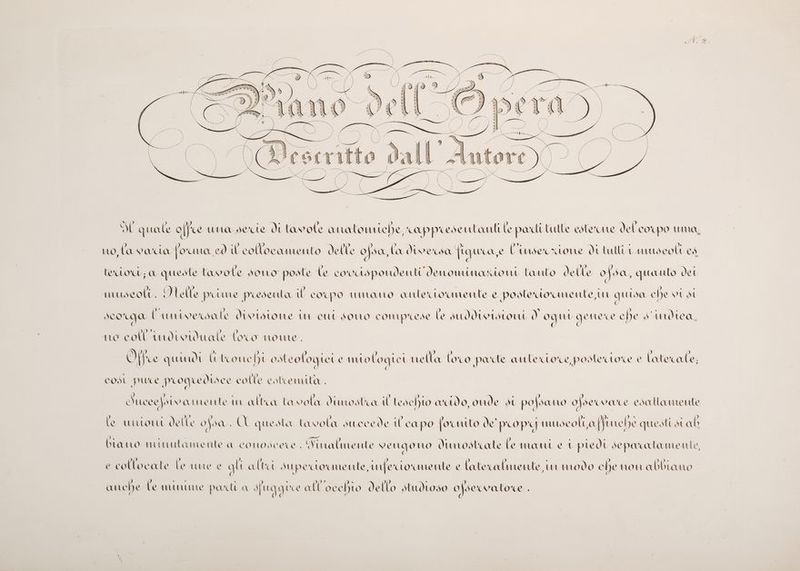 N.º 2.
Piano dell'Opera
Descritto dall'Autore
Il quale offre una serie di tavole anatomiche, rappresentanti le parti tutte esterne del corpo uma,
no, la varia forma ed il collocamento delle ossa, la diversa figura, e l'inserzione di tutti i muscoli es,
teriori; a queste tavole sono poste le corrispondenti denominazioni tanto delle ossa, quanto dei
muscoli. Nelle prime presenta il corpo umano anteriormente e posteriormente, in guisa che vi si
scorga l'universale divisione in cui sono comprese le suddivisioni d'ogni genere che s'indica,
no coll'individuale loro nome.
Offre quindi li tronchi osteologici e miologici nella loro parte anteriore, posteriore e laterale;
così pure progredisce colle estremità.
Successivamente in altra tavola dimostra il teschio arido, onde si possano osservare esattamente
le unioni delle ossa. A questa tavola succede il capo fornito de' proprj muscoli, affinchè questi si ab,
biano minutamente a conoscere. Finalmente vengono dimostrate le mani e i piedi separatamente,
e collocate le une e gli altri superiormente, inferiormente e lateralmente, in modo che non abbiano
anche le minime parti a sfuggire all'occhio dello studioso osservatore.